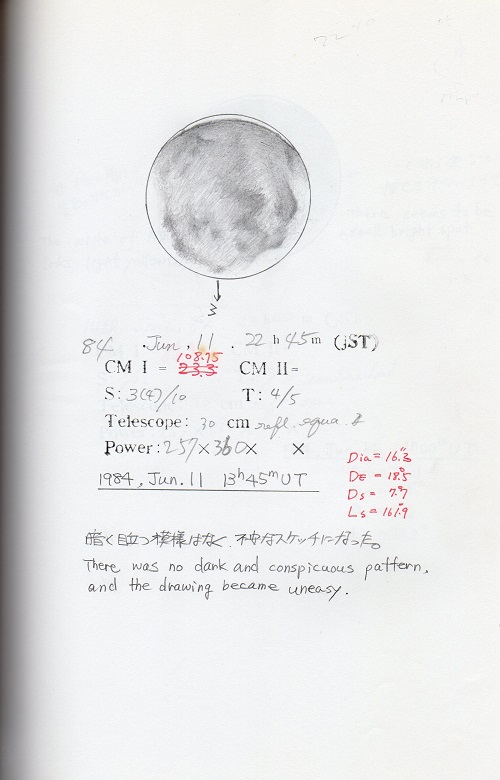 84 . Jun , 11 . 22 h 45 m (JST)
108.75
CM I = 233 CM II=
S: 3(4)/10 T: 4/5
Telescope: 30 cm refl. equa.
Power: 257× 360× ×
1984, Jun. 11 13h45mUT
Dia = 16.3"
DE = 18.5°
Ds = 7.7°
Ls = 161.9°
暗く目立つ模様はなく、不安なスケッチになった。
There was no dark and conspicuous pattern,
and the drawing became uneasy.